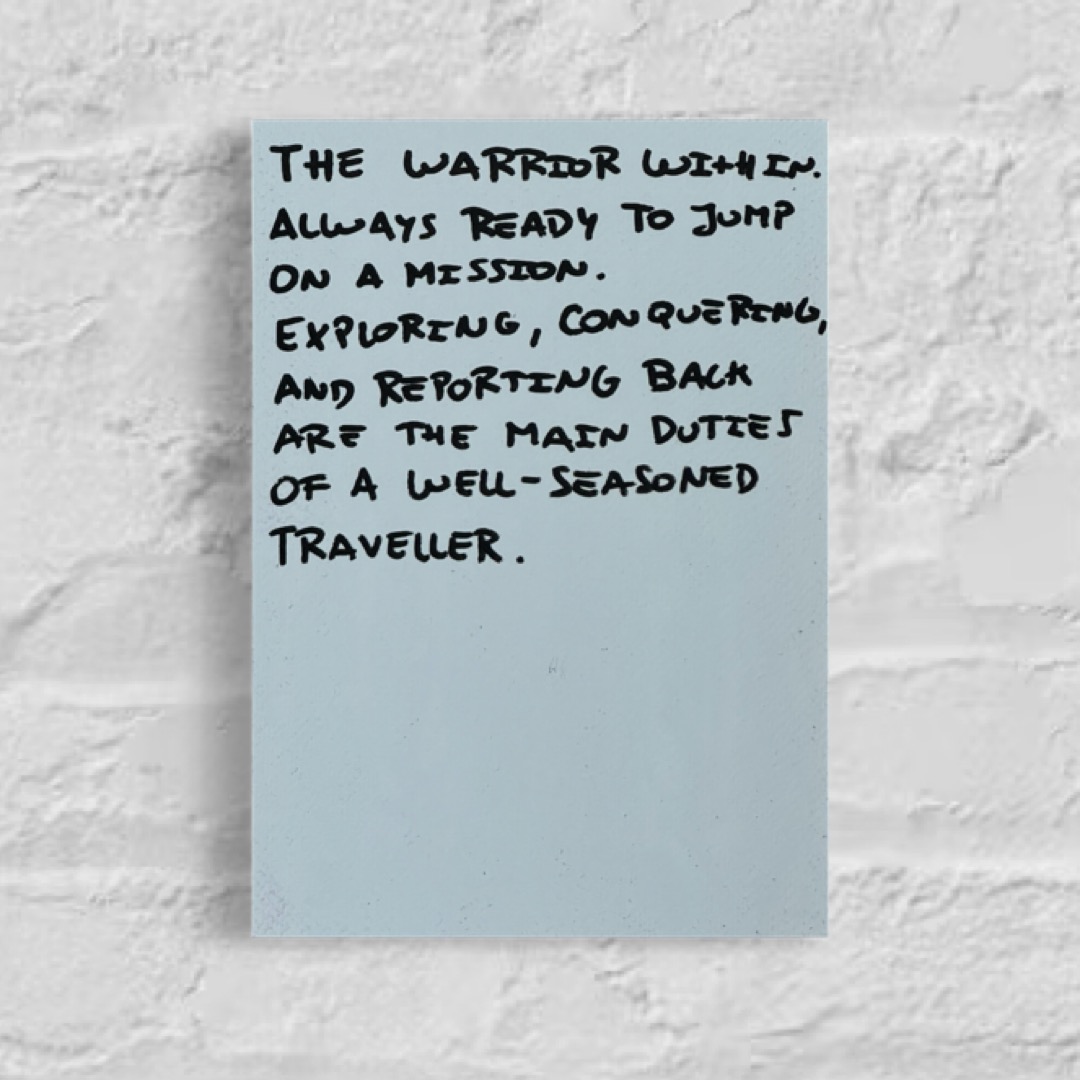 THE WARRIOR WITHIN.
ALWAYS READY TO JUMP
ON A MISSION.
EXPLORING, CONQUERING,
AND REPORTING BACK
ARE THE MAIN DUTIES
OF A WELL-SEASONED
TRAVELLER.